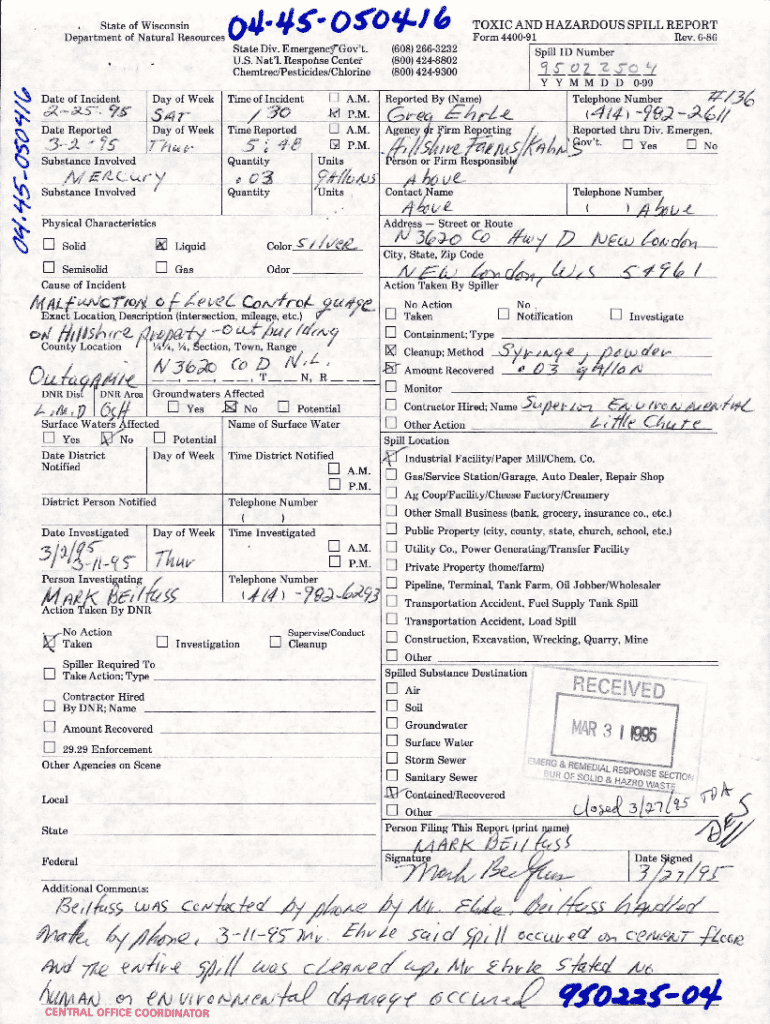 04-45-050416
State of Wisconsin
Department of Natural Resources
TOXIC AND HAZARDOUS SPILL REPORT
Form 4400-91 Rev. 6-86
State Div. Emergency Gov't. (608) 266-3232
U.S. Nat'l. Response Center (800) 424-8802
Chemtrec/Pesticides/Chlorine (800) 424-9300
Spill ID Number
95022504
Y Y M M D D 0-99
04-45-050416
#136
Date of Incident Day of Week Time of Incident A.M.
2-25-95 SAT 1 30 P.M.
Reported By (Name) Telephone Number
Greg Ehrle (414) -982-2611
Date Reported Day of Week Time Reported A.M.
3-2-95 Thur 5:48 P.M.
Agency or Firm Reporting Reported thru Div. Emergen. Gov't. Yes No
Hillshire Farms/Kahns
Substance Involved Quantity Units
Mercury .03 gallons
Person or Firm Responsible
Above
Substance Involved Quantity Units
Contact Name Telephone Number
Above ( ) Above
Physical Characteristics
Solid Liquid Color Silver
Semisolid Gas Odor
Address — Street or Route
N3620 Co Hwy D New London
City, State, Zip Code
New London, Wis 54961
Cause of Incident
Malfunction of Level Control guage
Exact Location Description (intersection, mileage, etc.)
on Hillshire property - out building
County Location ¼¼, ¼, Section, Town, Range
Outagamie N3620 Co D N.L.
, , , T N, R
DNR Dist. DNR Area Groundwaters Affected
L.M.D Osh Yes No Potential
Surface Waters Affected Name of Surface Water
Yes No Potential
Date District Notified Day of Week Time District Notified
A.M.
P.M.
District Person Notified Telephone Number
( )
Date Investigated Day of Week Time Investigated
3/2/95 A.M.
3-11-95 Thur P.M.
Person Investigating Telephone Number
Mark Beilfuss (414) -982-6293
Action Taken By DNR
No Action Taken Investigation Supervise/Conduct Cleanup
Spiller Required To Take Action; Type
Contractor Hired By DNR; Name
Amount Recovered
29.29 Enforcement
Other Agencies on Scene
Local
State
Federal
Action Taken By Spiller
No Action Taken No Notification Investigate
Containment; Type
Cleanup; Method Syringe, powder
Amount Recovered .03 gallon
Monitor
Contractor Hired; Name Superior Environmental
Other Action Little Chute
Spill Location
Industrial Facility/Paper Mill/Chem. Co.
Gas/Service Station/Garage, Auto Dealer, Repair Shop
Ag Coop/Facility/Cheese Factory/Creamery
Other Small Business (bank, grocery, insurance co., etc.)
Public Property (city, county, state, church, school, etc.)
Utility Co., Power Generating/Transfer Facility
Private Property (home/farm)
Pipeline, Terminal, Tank Farm, Oil Jobber/Wholesaler
Transportation Accident, Fuel Supply Tank Spill
Transportation Accident, Load Spill
Construction, Excavation, Wrecking, Quarry, Mine
Other
Spilled Substance Destination
Air
Soil
Groundwater
Surface Water
Storm Sewer
Sanitary Sewer
Contained/Recovered
Other
RECEIVED
MAR 31 1995
EMERG & REMEDIAL RESPONSE SECTION
BUR OF SOLID & HAZRD WASTE
closed 3/27/95
Person Filing This Report (print name)
Mark Beilfuss
Signature Date Signed
Mark Beilfuss 3/27/95
Additional Comments:
Beilfuss was contacted by phone by Mr. Ehrle. Beilfuss handled
matter by phone. 3-11-95 Mr. Ehrle said spill occured on cement floor
and the entire spill was cleaned up. Mr Ehrle stated no
human or environmental damage occured 950225-04
CENTRAL OFFICE COORDINATOR